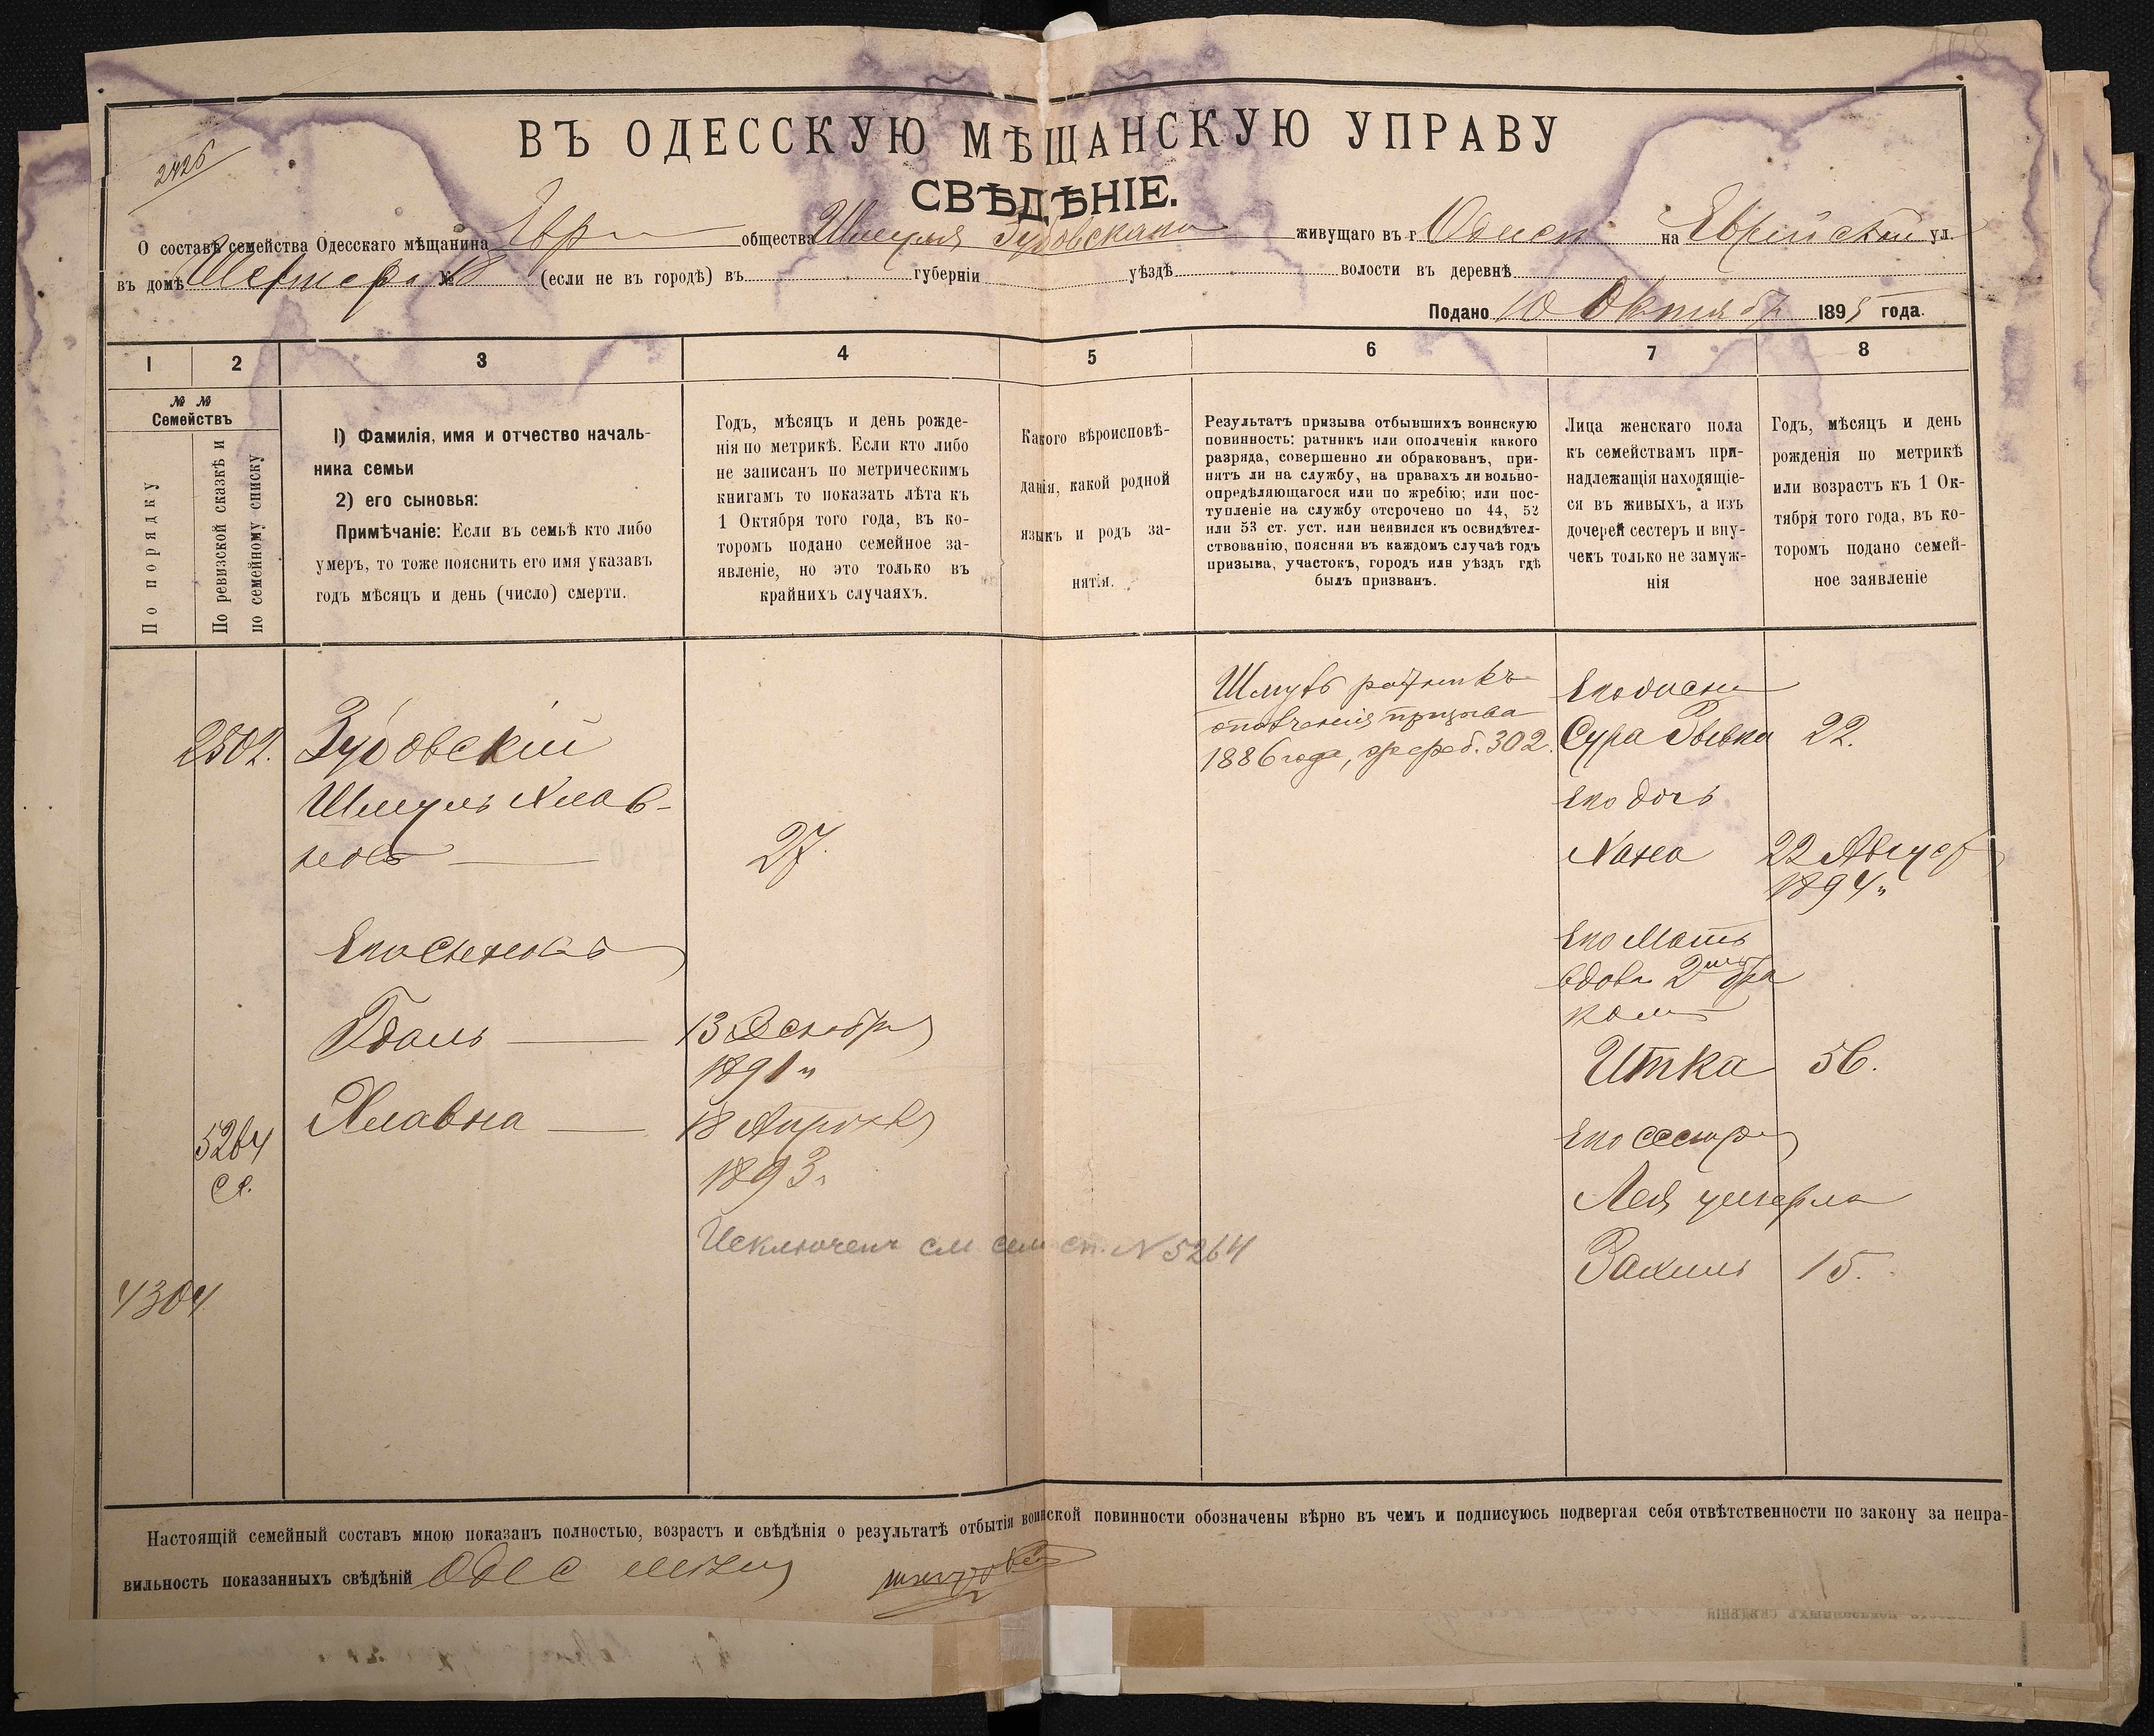 ВЪ ОДЕССКУЮ МѢЩАНСКУЮ УПРАВУ
СВѢДѢНІЕ.
2426
О составѣ семейства Одесскаго мѣщанина Евр общества Шмуля Зубовскаго живущаго въ г Одесѣ на Еврейской ул.
въ домѣ № 18 (если не въ городѣ) въ губерніи уѣздѣ волости въ деревнѣ
Подано 10 Октября 1895 года.
1 2 3 4 5 6 7 8
№ № Семействъ
По порядку
По ревизской сказкѣ и
по семейному списку
1) Фамилія, имя и отчество началь-
ника семьи
2) его сыновья:
Примѣчаніе: Если въ семьѣ кто либо
умеръ, то тоже пояснить его имя указавъ
годъ мѣсяцъ и день (число) смерти.
Годъ, мѣсяцъ и день рожде-
нія по метрикѣ. Если кто либо
не записанъ по метрическимъ
книгамъ то показать лѣта къ
1 Октября того года, въ ко-
торомъ подано семейное за-
явленіе, но это только въ
крайнихъ случаяхъ.
Какого вѣроисповѣ-
данія, какой родной
языкъ и родъ за-
нятія.
Результатъ призыва отбывшихъ воинскую
повинность: ратникъ или ополченія какого
разряда, совершенно ли обракованъ, при-
нятъ ли на службу, на правахъ ли вольно-
опредѣляющагося или по жребію; или пос-
тупленіе на службу отсрочено по 44, 52
или 53 ст. уст. или неявился къ освидѣтел-
ствованію, поясняя въ каждомъ случаѣ годъ
призыва, участокъ, городъ или уѣздъ гдѣ
былъ призванъ.
Лица женскаго пола
къ семействамъ при-
надлежащія находящіе-
ся въ живыхъ, а изъ
дочерей сестеръ и вну-
чекъ только не замуж-
нія
Годъ, мѣсяцъ и день
рожденія по метрикѣ
или возрастъ къ 1 Ок-
тября того года, въ ко-
торомъ подано семей-
ное заявленіе
2502.
Зубовскій
Шмуль Хлав-
новъ
27.
Его сыновья
Гдаль
13 Декабря
1891 г
Хлавна
18 Апрѣля
1893 г
5264
сп.
Исключенъ см сем сп. N 5264
4304
Шмуль ратникъ
ополченія призыва
1886 года, жреб. 302.
Его жена
Сура Ривка 22.
Его дочь
Хана 22 Август
1894 г
Его Мать
вдова 2мъ бра
комъ
Итка 56.
Его сестры
Лея умерла
Рахиль 15.
Настоящій семейный составъ мною показанъ полностью, возрастъ и свѣдѣнія о результатѣ отбытія воинской повинности обозначены вѣрно въ чемъ и подписуюсь подвергая себя отвѣтственности по закону за непра-
вильность показанныхъ свѣдѣній Одес